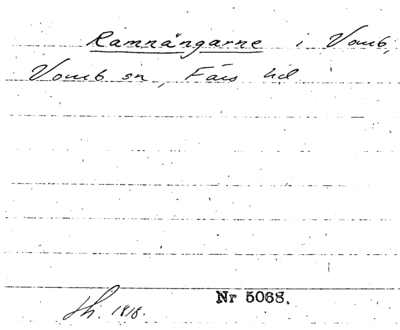 Ramnängarne i Vomb,
Vomb sn, Färs hd
Nr 5068.
Th. 1818.